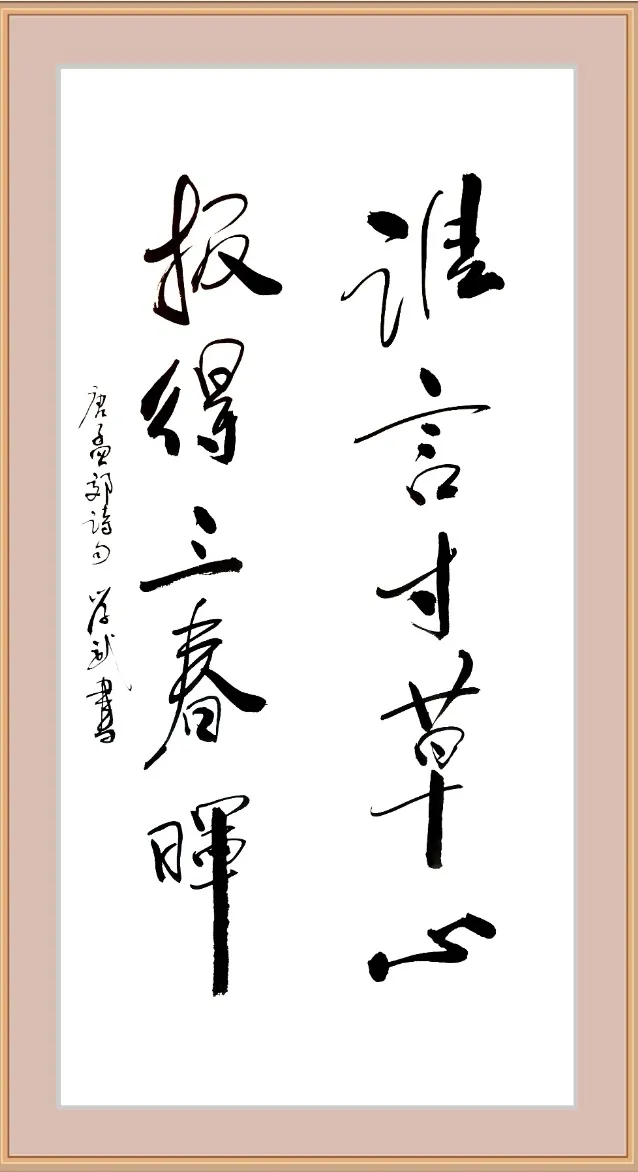 谁言寸草心
报得三春暉
唐孟郊詩句 学武書